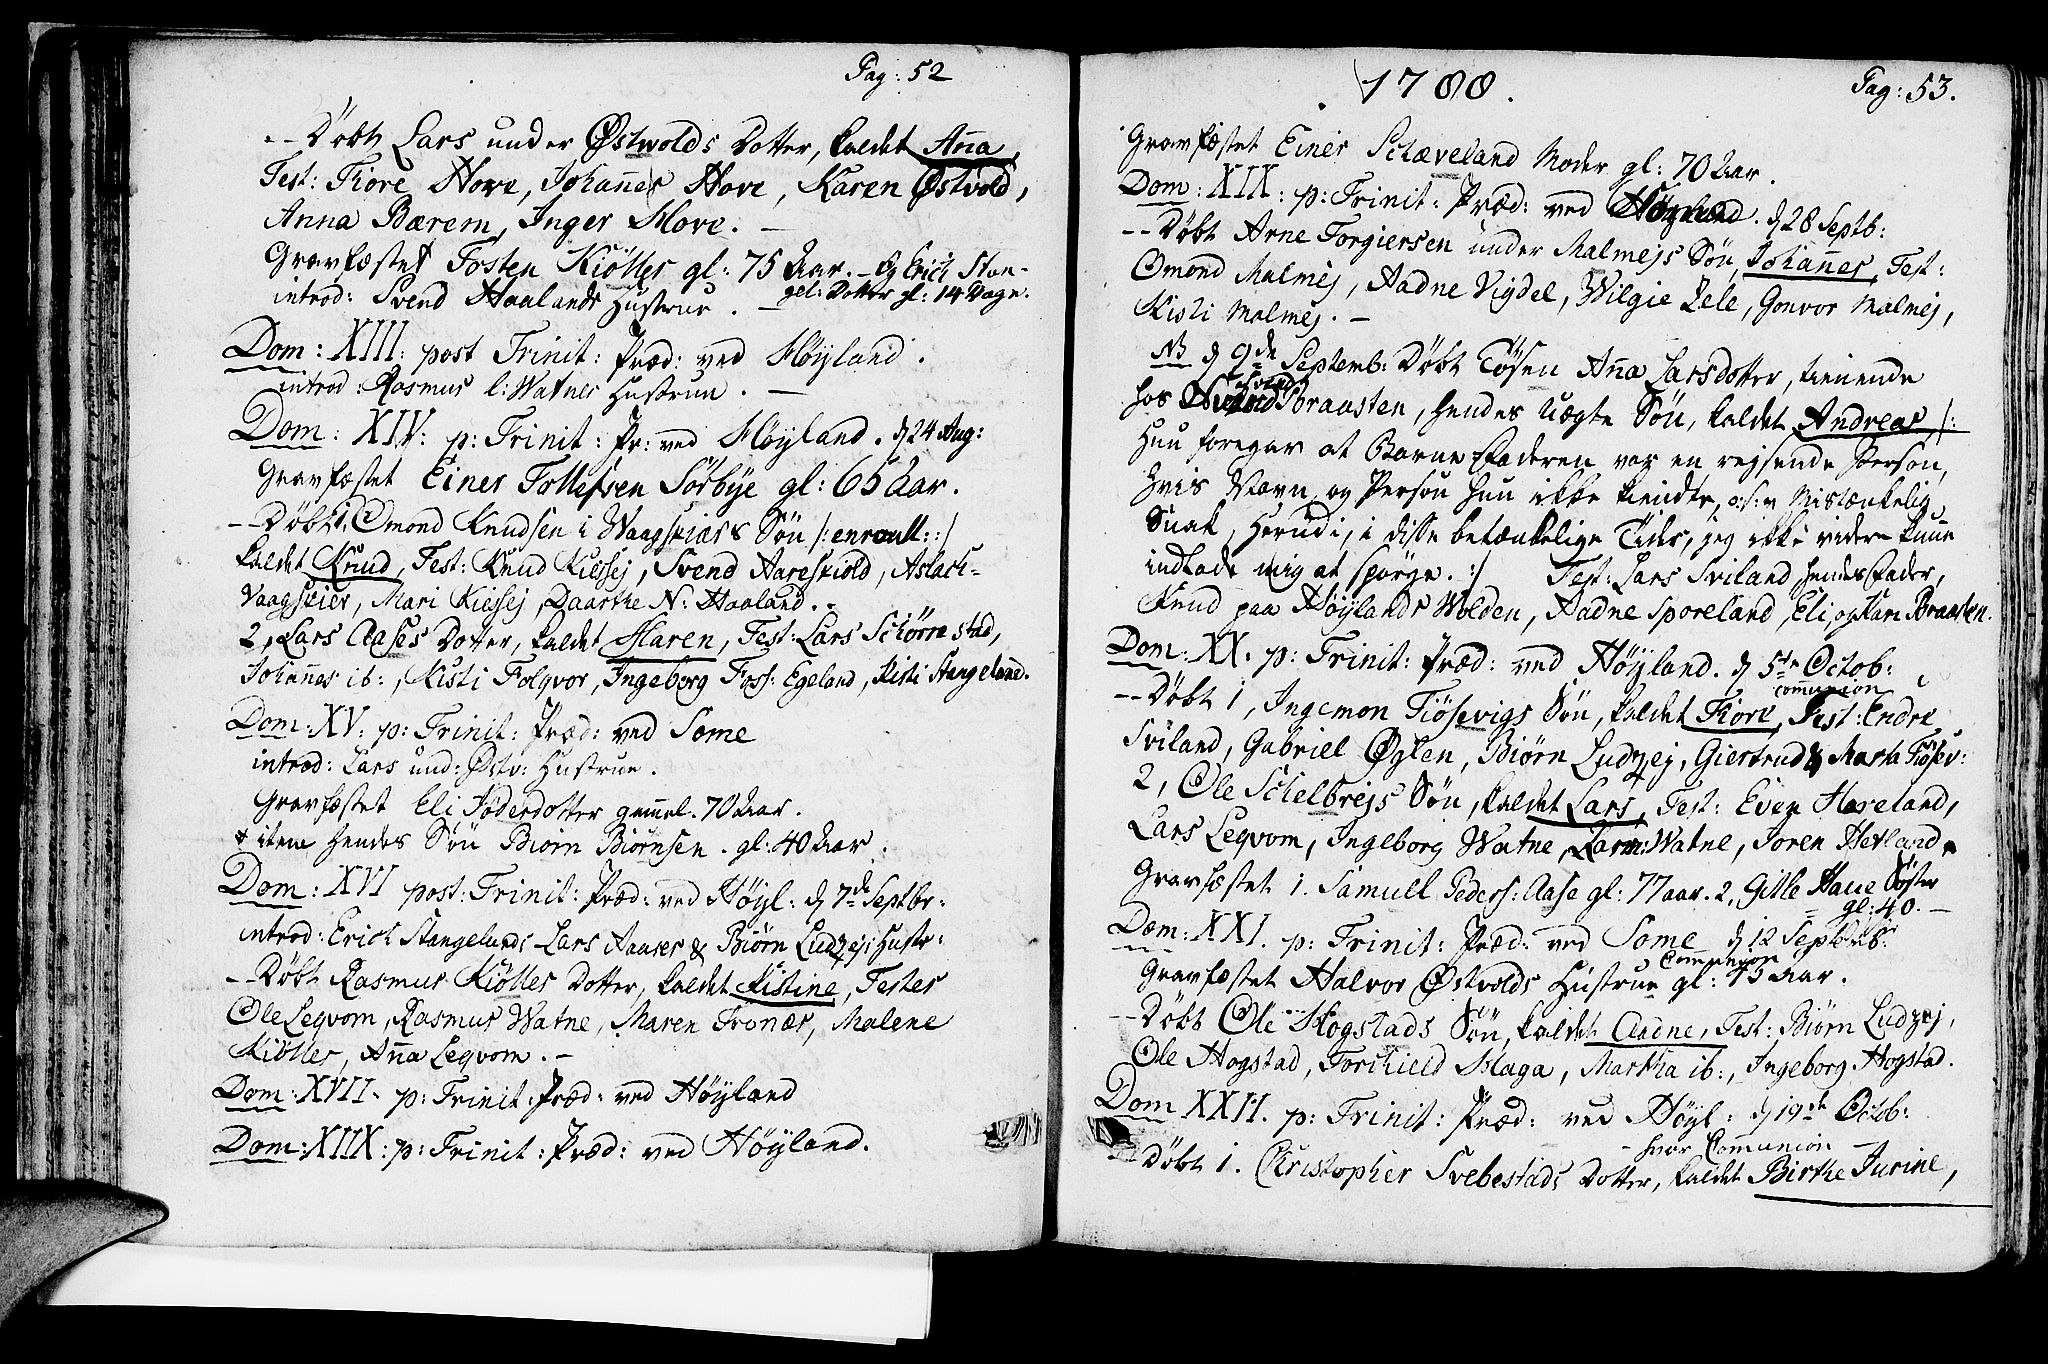 Pag: 52
-- Døbt Lars under Østvolds Dotter, kaldet Aña,
Test: Tore Hove, Johañes Hove, Karen Østvold,
Anna Bærem, Inger Hove. —
Gravfæstet Tosten Kiølles gl: 75 Aar. – Og Erich Stan-
gel: Dotter gl: 14 Dage.
introd: Svend Haalands Hustrue. —
Dom: XIII: post Trinit: Præd: ved Høyland.
introd: Rasmus l: Watnes Hustrue. —
Dom: XIV: p: Trinit: Pr: ved Høyland. d 24 Aug:
Gravfæstet Einer Tollefsen Sörbye gl: 65 Aar.
-- Døbt 1, Omond Knudsen i Waagskiærs Søn /: enroull: :/
kaldet Knud, Test: Knud Kiessej, Svend Hareskiold, Aslach
Vaagskier, Mari Kiessej, Daarthe N: Haaland. -
2, Lars Aases Dotter, kaldet Maren, Test: Lars Schörrestad,
Johañes ib:, Kisti Folqvor, Ingeborg Foss: Egeland, Kisti Stangeland.
Dom: XV: p: Trinit: Præd: ved Some
introd: Lars und: Østv: Hustrue.
Gravfæstet Eli Föderdotter gam̃el. 70 Aar.
+ item hendes Søn Biørn Biørnsen. gl: 40 Aar.
Dom: XVI post: Trinit: Præd: ved Höyl: d 7de Septbr:
introd: Erich Stangelands Lars Aases & Biørn Ludzejs Hustr:
-- Døbt Rasmus Kiølles Dotter, kaldet Kistine, Testes
Ole Leqvom, Rasmus Watne, Maren Tronæs, Malene
Kiölles, Aña Leqvom. -
Dom: XVII. p: Trinit: Præd: ved Høyland
Dom: XIIX: p: Trinit: Præd: ved Høyland.
1788.
Pag: 53.
Gravfæstet Einer Schæveland Moder gl: 70 Aar.
Dom: XIX: p: Trinit: Præd: ved Høyland. d 28 Septb:
-- Døbt Arne Torgiersen under Malmejs Søn, Johañes, Test:
Omond Malmej, Aadne Vigdel, Wilgie Lele, Gonvor Malmej,
Kisti Malmej. -
NB d 9de Septemb: Døbt Tøsen Aña Larsdotter, tienende
hos Svend Braasten, hendes Uægte Søn, kaldet Andreas, /:
Hun foregav at Barne Faderen var en rejsende Person,
hvis Navn og Person hun ikke kiendte, Mistænkelig
Snak, herudi, i disse betænkelige Tider, jeg ikke videre kuñe
indlade mig at spørge. :/ Test: Lars Sviland hendes Fader,
Knud paa Høylands Wolden, Aadne Sporeland, Eli og Kari Braasten.
Dom: XX: p: Trinit: Præd: ved Høyland. d 5te Octob:
communion
-- Døbt 1, Ingemon Tiösevigs Søn, kaldet Tore, Test: Endre
Sviland, Gabriel Øglen, Biørn Ludzej, Giertrud & Marta Tiösev:
2, Ole Schelbrejs Søn, kaldet Lars, Test: Even Haveland,
Lars Leqvom, Ingeborg Watne, Karn: Watne, Soren Hetland.
Gravfæstet 1. Samuel Peders: Aase gl: 77 aar. 2, Gitle Haue Söster
gl: 40. —
Dom: XXI. p: Trinit: Præd: ved Some d 12 Septemb:
Communion
Gravfæstet Halvor Østvolds Hustrue gl: 75 Aar.
-- Døbt Ole Hogstads Søn, kaldet Aadne, Test: Biørn Ludzej,
Ole Hogstad, Torchield Maga, Martha ib:, Ingeborg Hogstad.
Dom XXII. p: Trinit: Præd: ved Höyl: d 19de Octob:
- hvor Communion —
-- Døbt 1. Christopher Svebestads Dotter, kaldet Birthe Jurine,